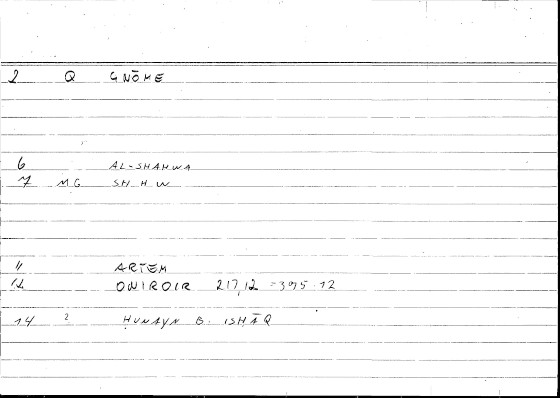 2 Q GNŌME
6 AL-SHAHWA
7 MG SH H W
11 ARTEM
12 ONIROIR 217,12 = 395.12
14 2 ḤUNAYN B. ISḤĀQ